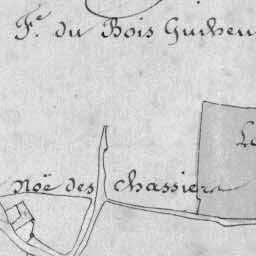 Fe. du Bois Guiheu
Le
Noë des Chassiers